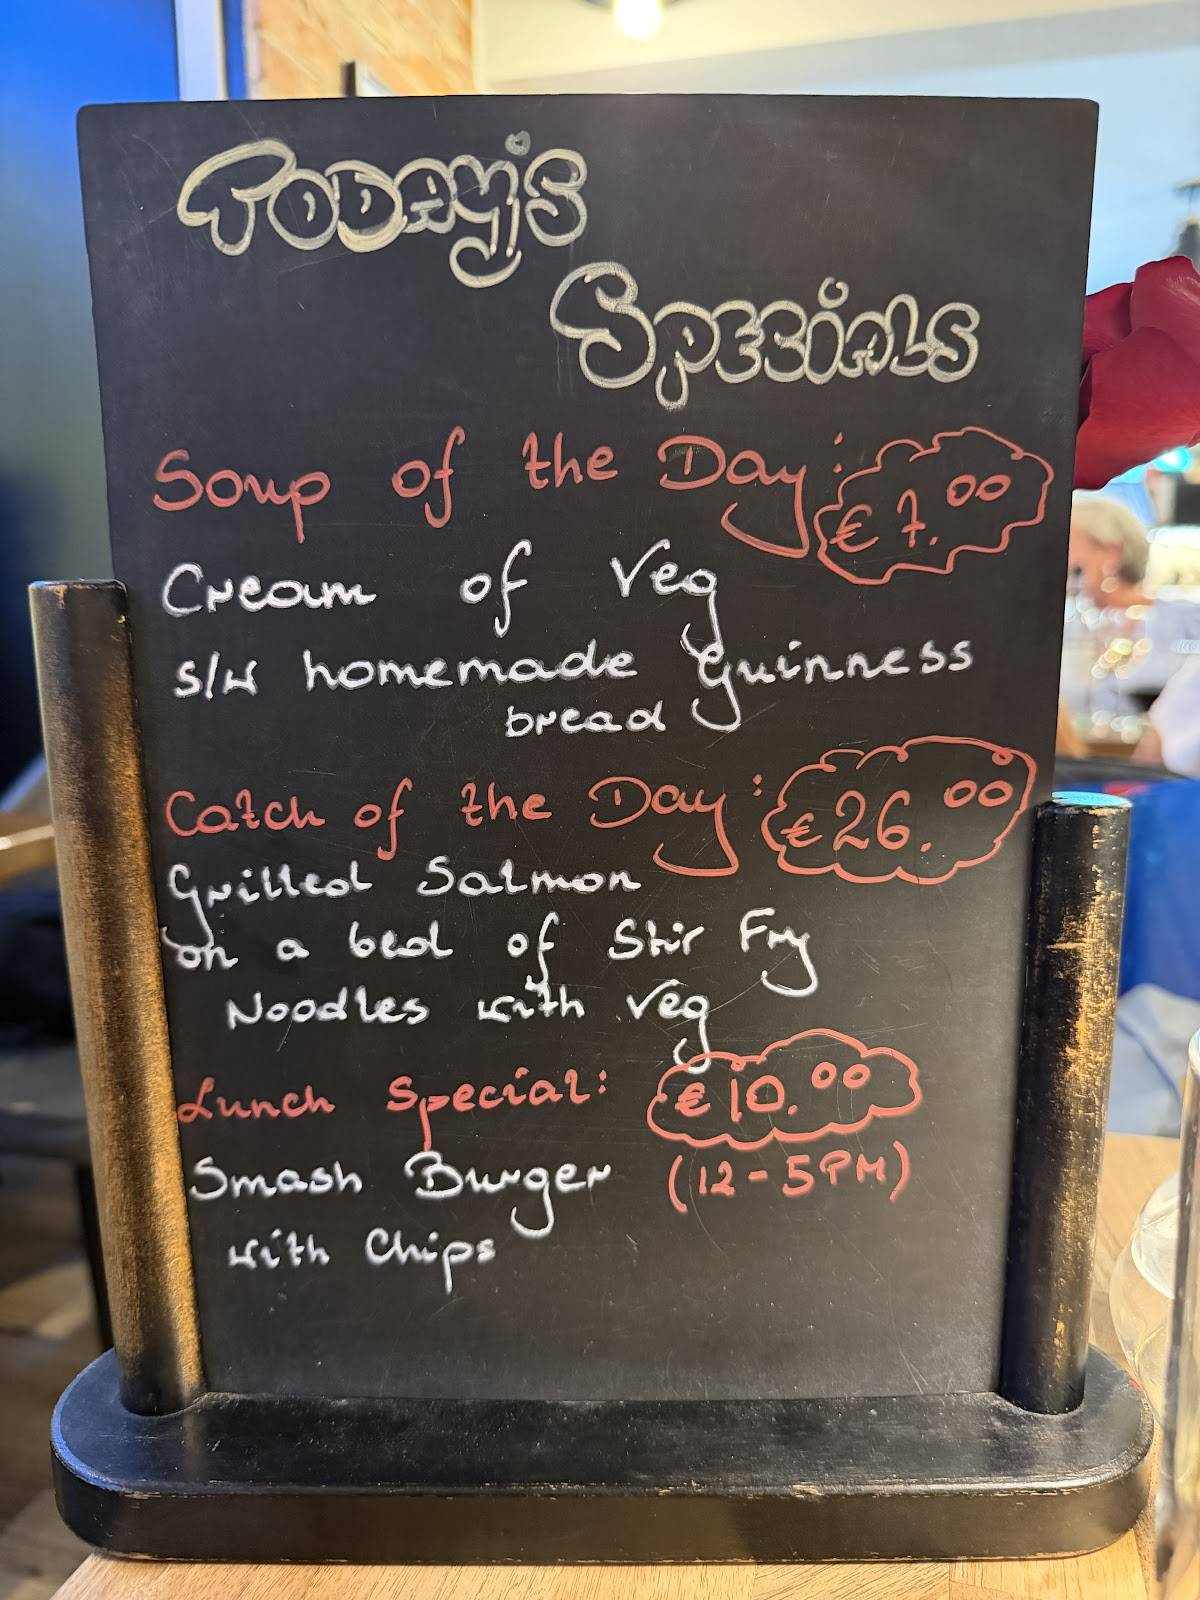 Today's
Specials
Soup of the Day: €7.00
Cream of Veg
s/w homemade Guinness
bread
Catch of the Day: €26.00
Grilled Salmon
on a bed of Stir Fry
Noodles with Veg
Lunch Special: €10.00
Smash Burger (12-5PM)
with Chips